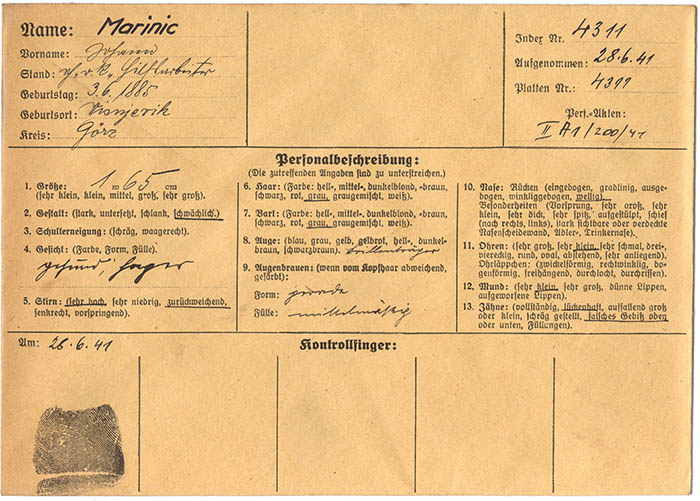 Name: Marinic
Vorname: Johann
Stand: rh. v.k. Hilfsarbeiter
Geburtstag: 3.6.1885
Geburtsort: Visnjerik
Kreis: Görz
Index Nr. 4311
Aufgenommen: 28.6.41
Platten Nr.: 4311
Pers.-Akten:
II A1/200/41
Personalbeschreibung:
(Die zutreffenden Angaben sind zu unterstreichen.)
1. Größe: 1 m 65 cm
(sehr klein, klein, mittel, groß, sehr groß).
2. Gestalt: (stark, untersetzt, schlank, schwächlich.)
3. Schulterneigung: (schräg, waagerecht).
4. Gesicht: (Farbe, Form, Fülle).
gesund, hager
5. Stirn: (sehr hoch, sehr niedrig, zurückweichend,
senkrecht, vorspringend).
6. Haar: (Farbe: hell-, mittel-, dunkelblond, -braun,
schwarz, rot, grau, graugemischt, weiß).
7. Bart: (Farbe: hell-, mittel-, dunkelblond, -braun,
schwarz, rot, grau, graugemischt, weiß).
8. Auge: (blau, grau, gelb, gelbrot, hell-, dunkel-
braun, schwarzbraun). Brillenträger
9. Augenbrauen: (wenn vom Kopfhaar abweichend,
gefärbt):
Form: gerade
Fülle: mittelmäßig
10. Nase: Rücken (eingebogen, gradlinig, ausge-
bogen, winkliggebogen, wellig).
Besonderheiten (Vorsprung, sehr groß, sehr
klein, sehr dick, sehr spitz, aufgestülpt, schief
(nach rechts, links), stark sichtbare oder verdeckte
Nasenscheidewand, Adler-, Trinkernase).
11. Ohren: (sehr groß, sehr klein, sehr schmal, drei-,
viereckig, rund, oval, abstehend, sehr anliegend).
Ohrläppchen: (zwickelförmig, rechtwinklig, bo-
genförmig, freihängend, durchlocht, durchrissen).
12. Mund: (sehr klein, sehr groß, dünne Lippen,
aufgeworfene Lippen).
13. Zähne: (vollständig, lückenhaft, auffallend groß
oder klein, schräg gestellt, falsches Gebiß oben
oder unten, Füllungen).
Am: 28.6.41
Kontrollfinger: